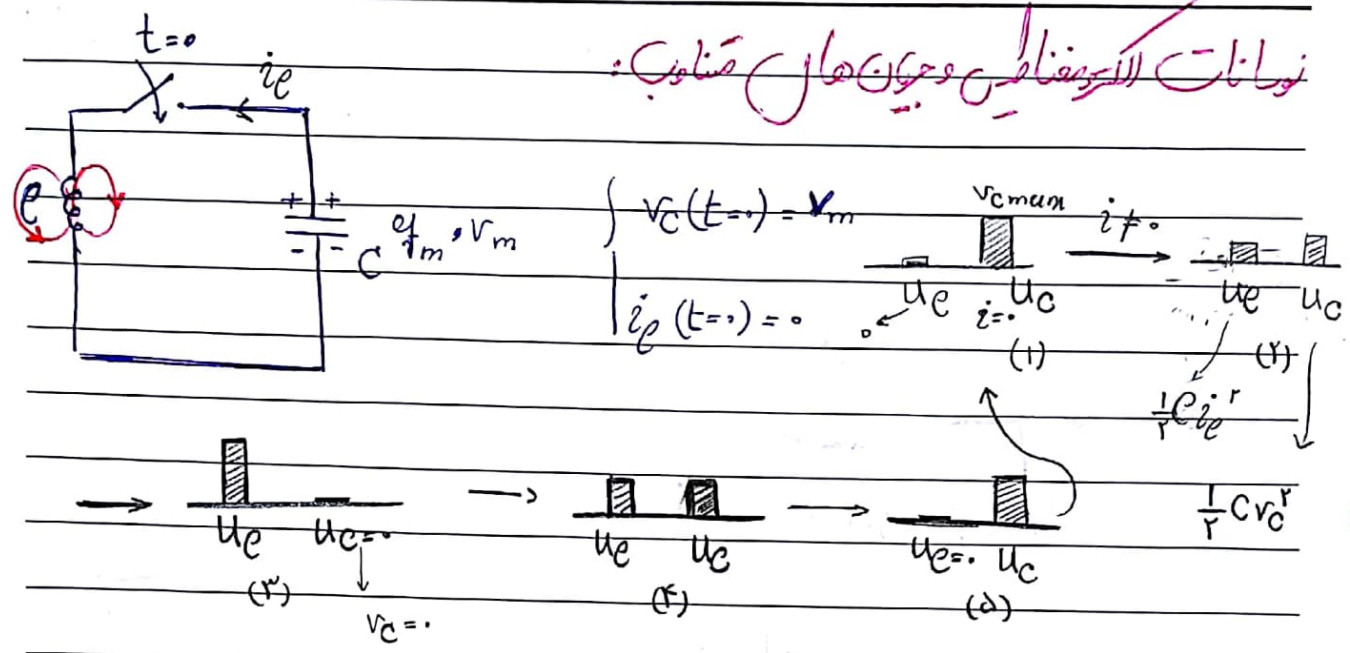 نوسانات الکترومغناطیس و جریان های متناوب:
t=۰
iℓ
ℓ
+ +
- -
C qm, Vm
Vc(t=۰) = Vm
iℓ(t=۰) = ۰
Vcmax
i≠۰
Uℓ Uc
۰ i=۰
(۱)
Uℓ Uc
(۲)
۱/۲ ℓiℓ²
۱/۲ CVc²
Uℓ Uc=۰
(۳)
Vc=۰
Uℓ Uc
(۴)
Uℓ=۰ Uc
(۵)